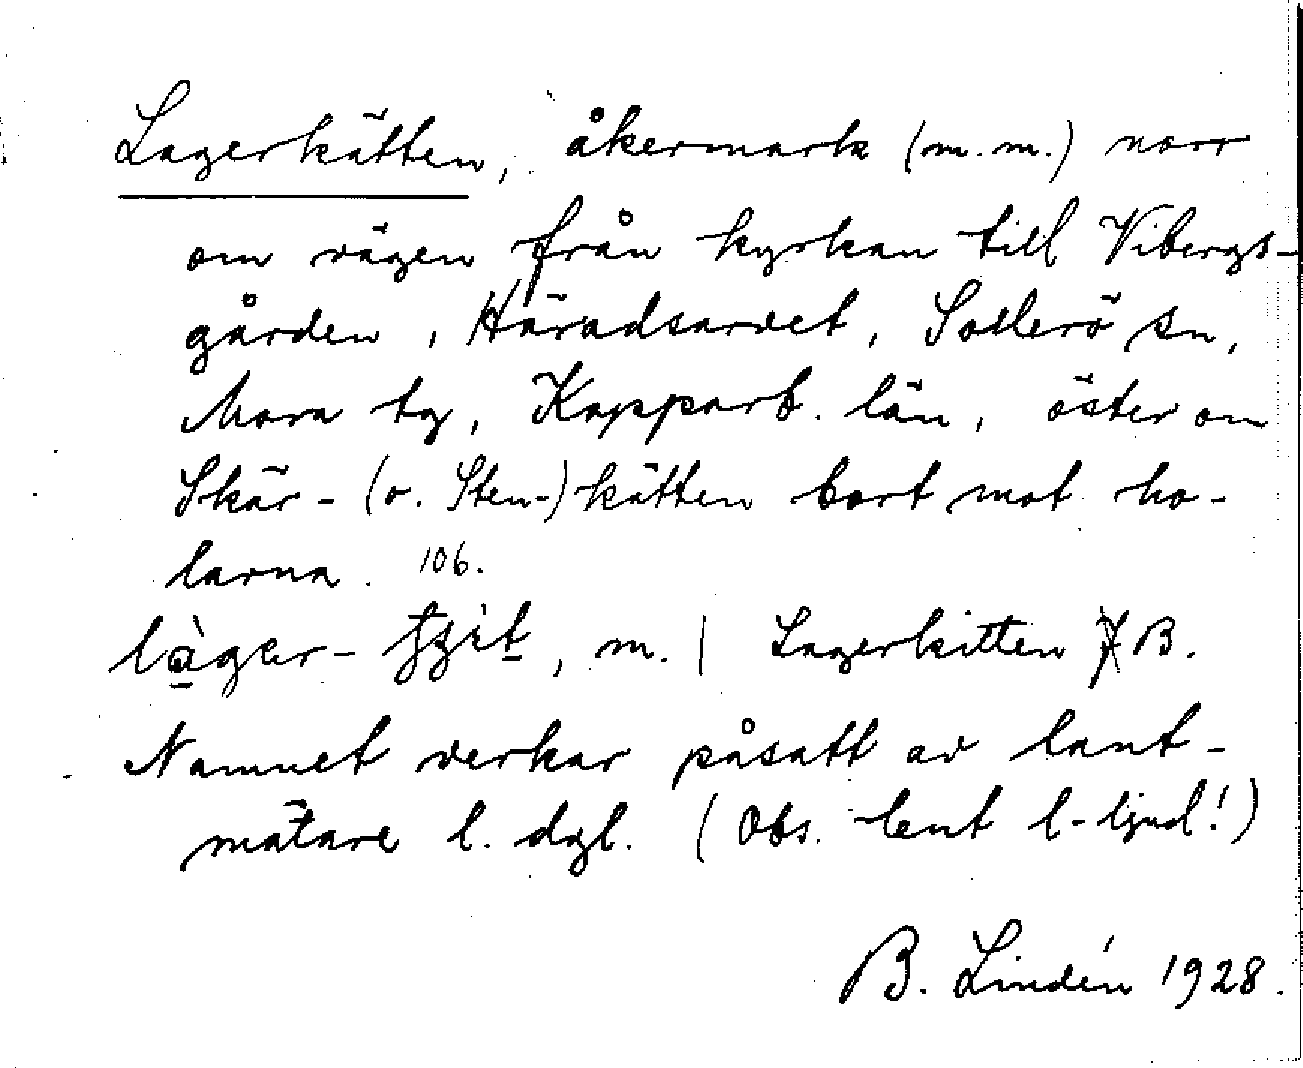 Lagerkätten, åkermark (m.m.) norr
om vägen från kyrkan till Vibergs-
gården, Häradsarvet, Sollerö sn,
Mora tg, Kopparb. län, öster om
Skär- (o. Sten-) kätten bort mot ho-
larna. 106.
làger-, m. | Lagerkitten B.
Namnet verkar påsatt av lant-
mätare l. dyl. (Obs. tent l-ljud!)
B. Lindén 1928.